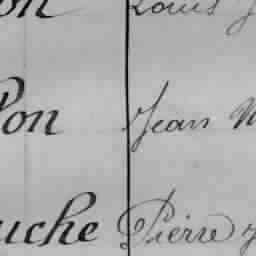 on Louis
Pon Jean
uche Pierre